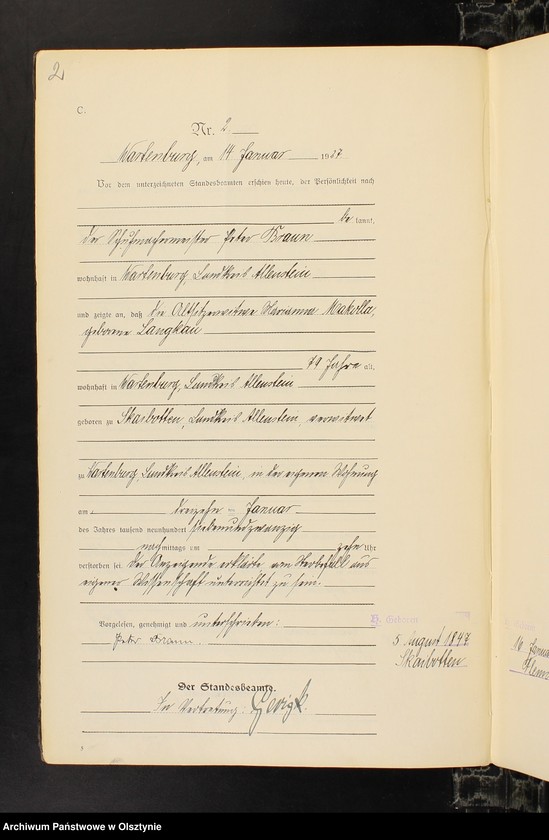 2
C.
Nr. 2
Wartenburg, am 14 Januar 1927.
Vor dem unterzeichneten Standesbeamten erschien heute, der Persönlichkeit nach
be kannt,
der Schuhmachermeister Peter Braun
wohnhaft in Wartenburg, Landkreis Allenstein
und zeigte an, daß die Altsitzerwitwe Marianna Makolla,
geborene Langkau
79 Jahre alt,
wohnhaft in Wartenburg, Landkreis Allenstein
geboren zu Skaibotten, Landkreis Allenstein, verwitwet
zu Wartenburg, Landkreis Allenstein, in der eigenen Wohnung
am dreizehn Januar
des Jahres tausend neunhundert siebenundzwanzig
nachmittags um zehn Uhr
verstorben sei. Der Anzeigende erklärte, vom Sterbefall aus
eigener Wissenschaft unterrichtet zu sein.
Vorgelesen, genehmigt und unterschrieben:
Peter Braun.
H. Geboren
5 August 1847
Skaibotten
Der Standesbeamte.
In Vertretung:
16 Janua
Archiwum Państwowe w Olsztynie